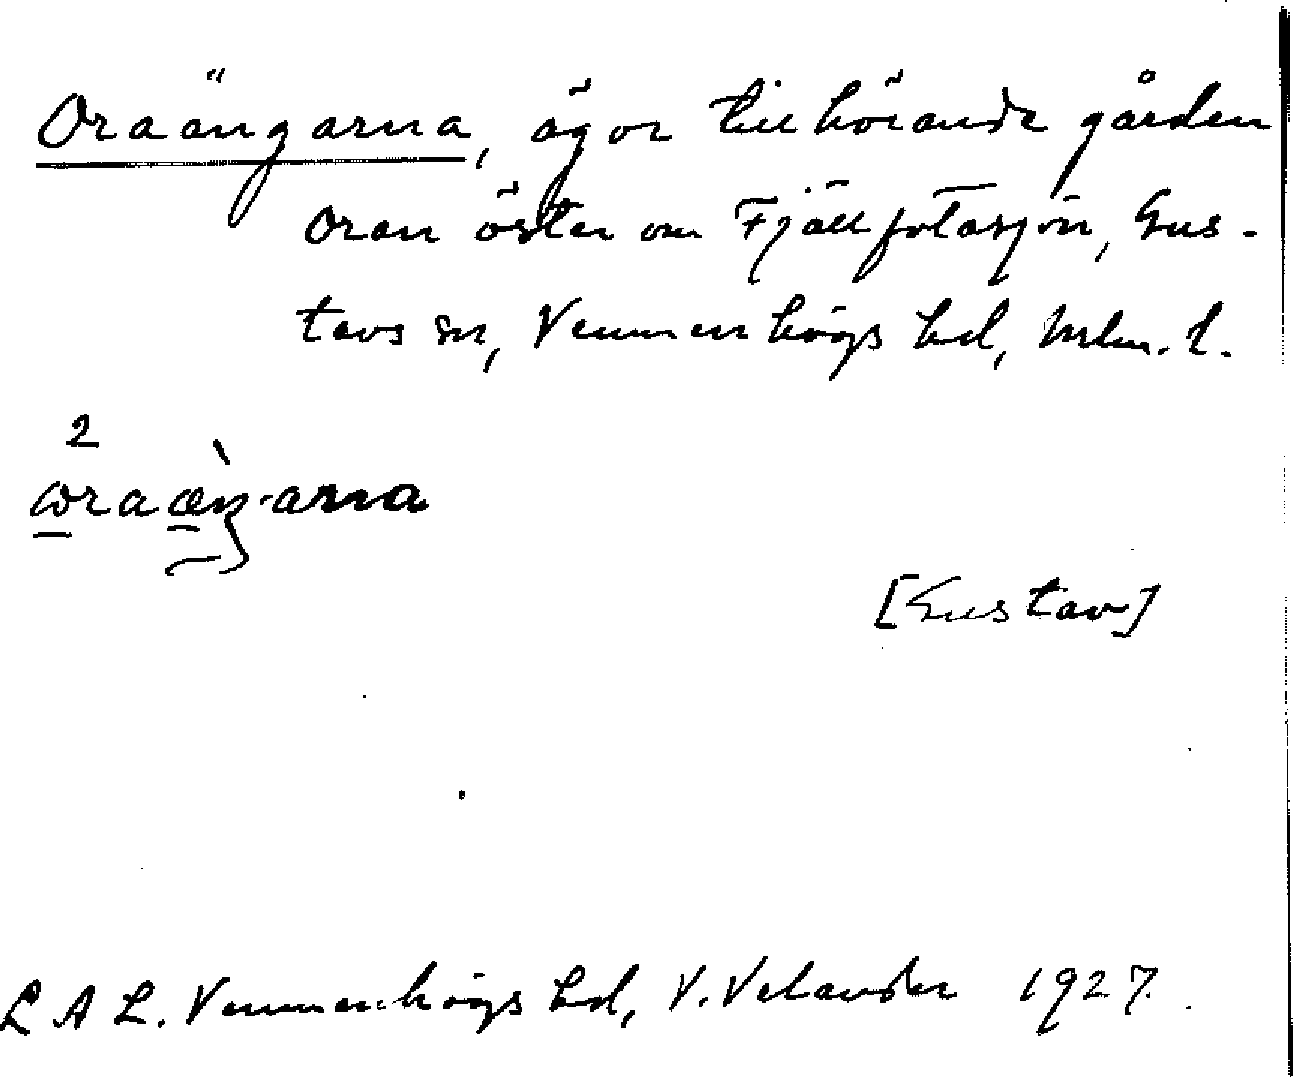 Oraängarna, ägor tillhörande gården
Oran öster om Fjällfotasjön, Gus-
tavs sn, Vemmenhögs hd, Mlm. l.
2
[Gustav]
L A L. Vemmenhögs hd, V. Velander 1927.